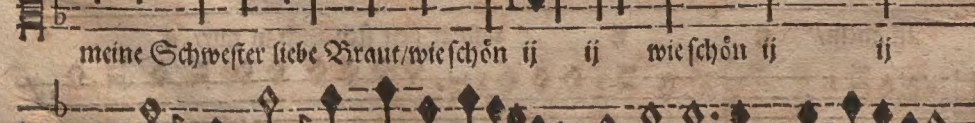 meine Schwester liebe Braut/wie schön ij ij wie schön ij ij